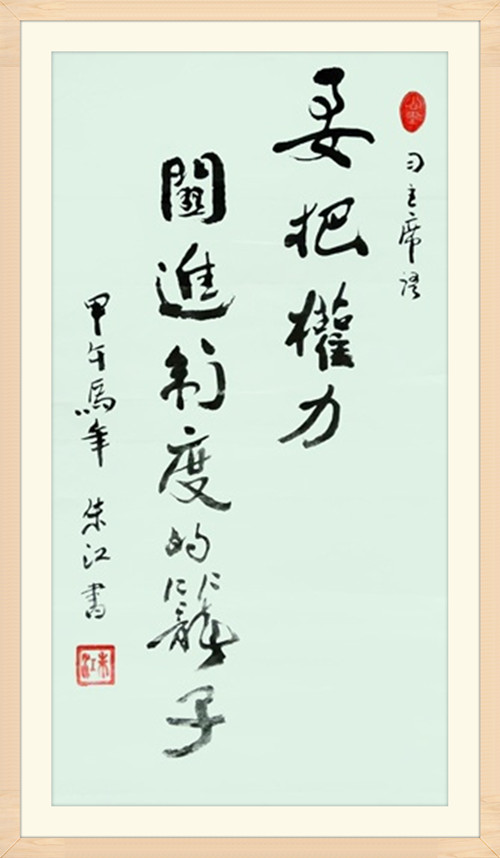 习主席語
要把權力
關進制度的籠子
甲午馬年 朱江書
朱江